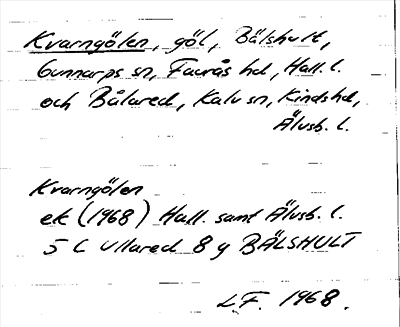 Kvarngölen, göl, Bälshult,
Gunnarps sn, Faurås hd, Hall. l.
och Bålared, Kalv sn, Kinds hd,
Älvsb. l.
Kvarngölen
ek (1968) Hall. samt Älvsb. l.
5 C Ullared 8 g BÄLSHULT
LF. 1968.